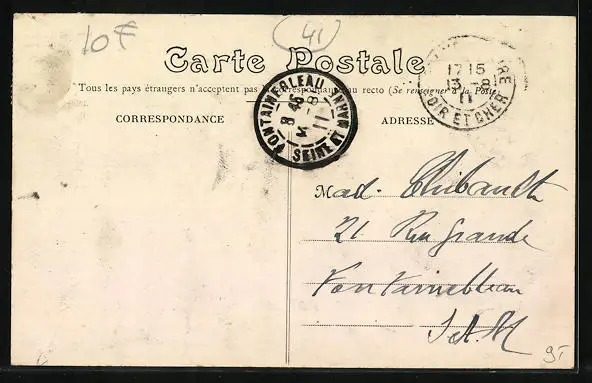 10F
41
Carte Postale
Tous les pays étrangers n'acceptent pas la correspondance au recto (Se renseigner à la Poste)
CORRESPONDANCE
ADRESSE
FONTAINEBLEAU
8 45
8
11
SEINE ET MARNE
17 15
13 -8
11
LOIR ET CHER
Mad. Thibault
21 Rue Grande
Fontainebleau
S.et.M